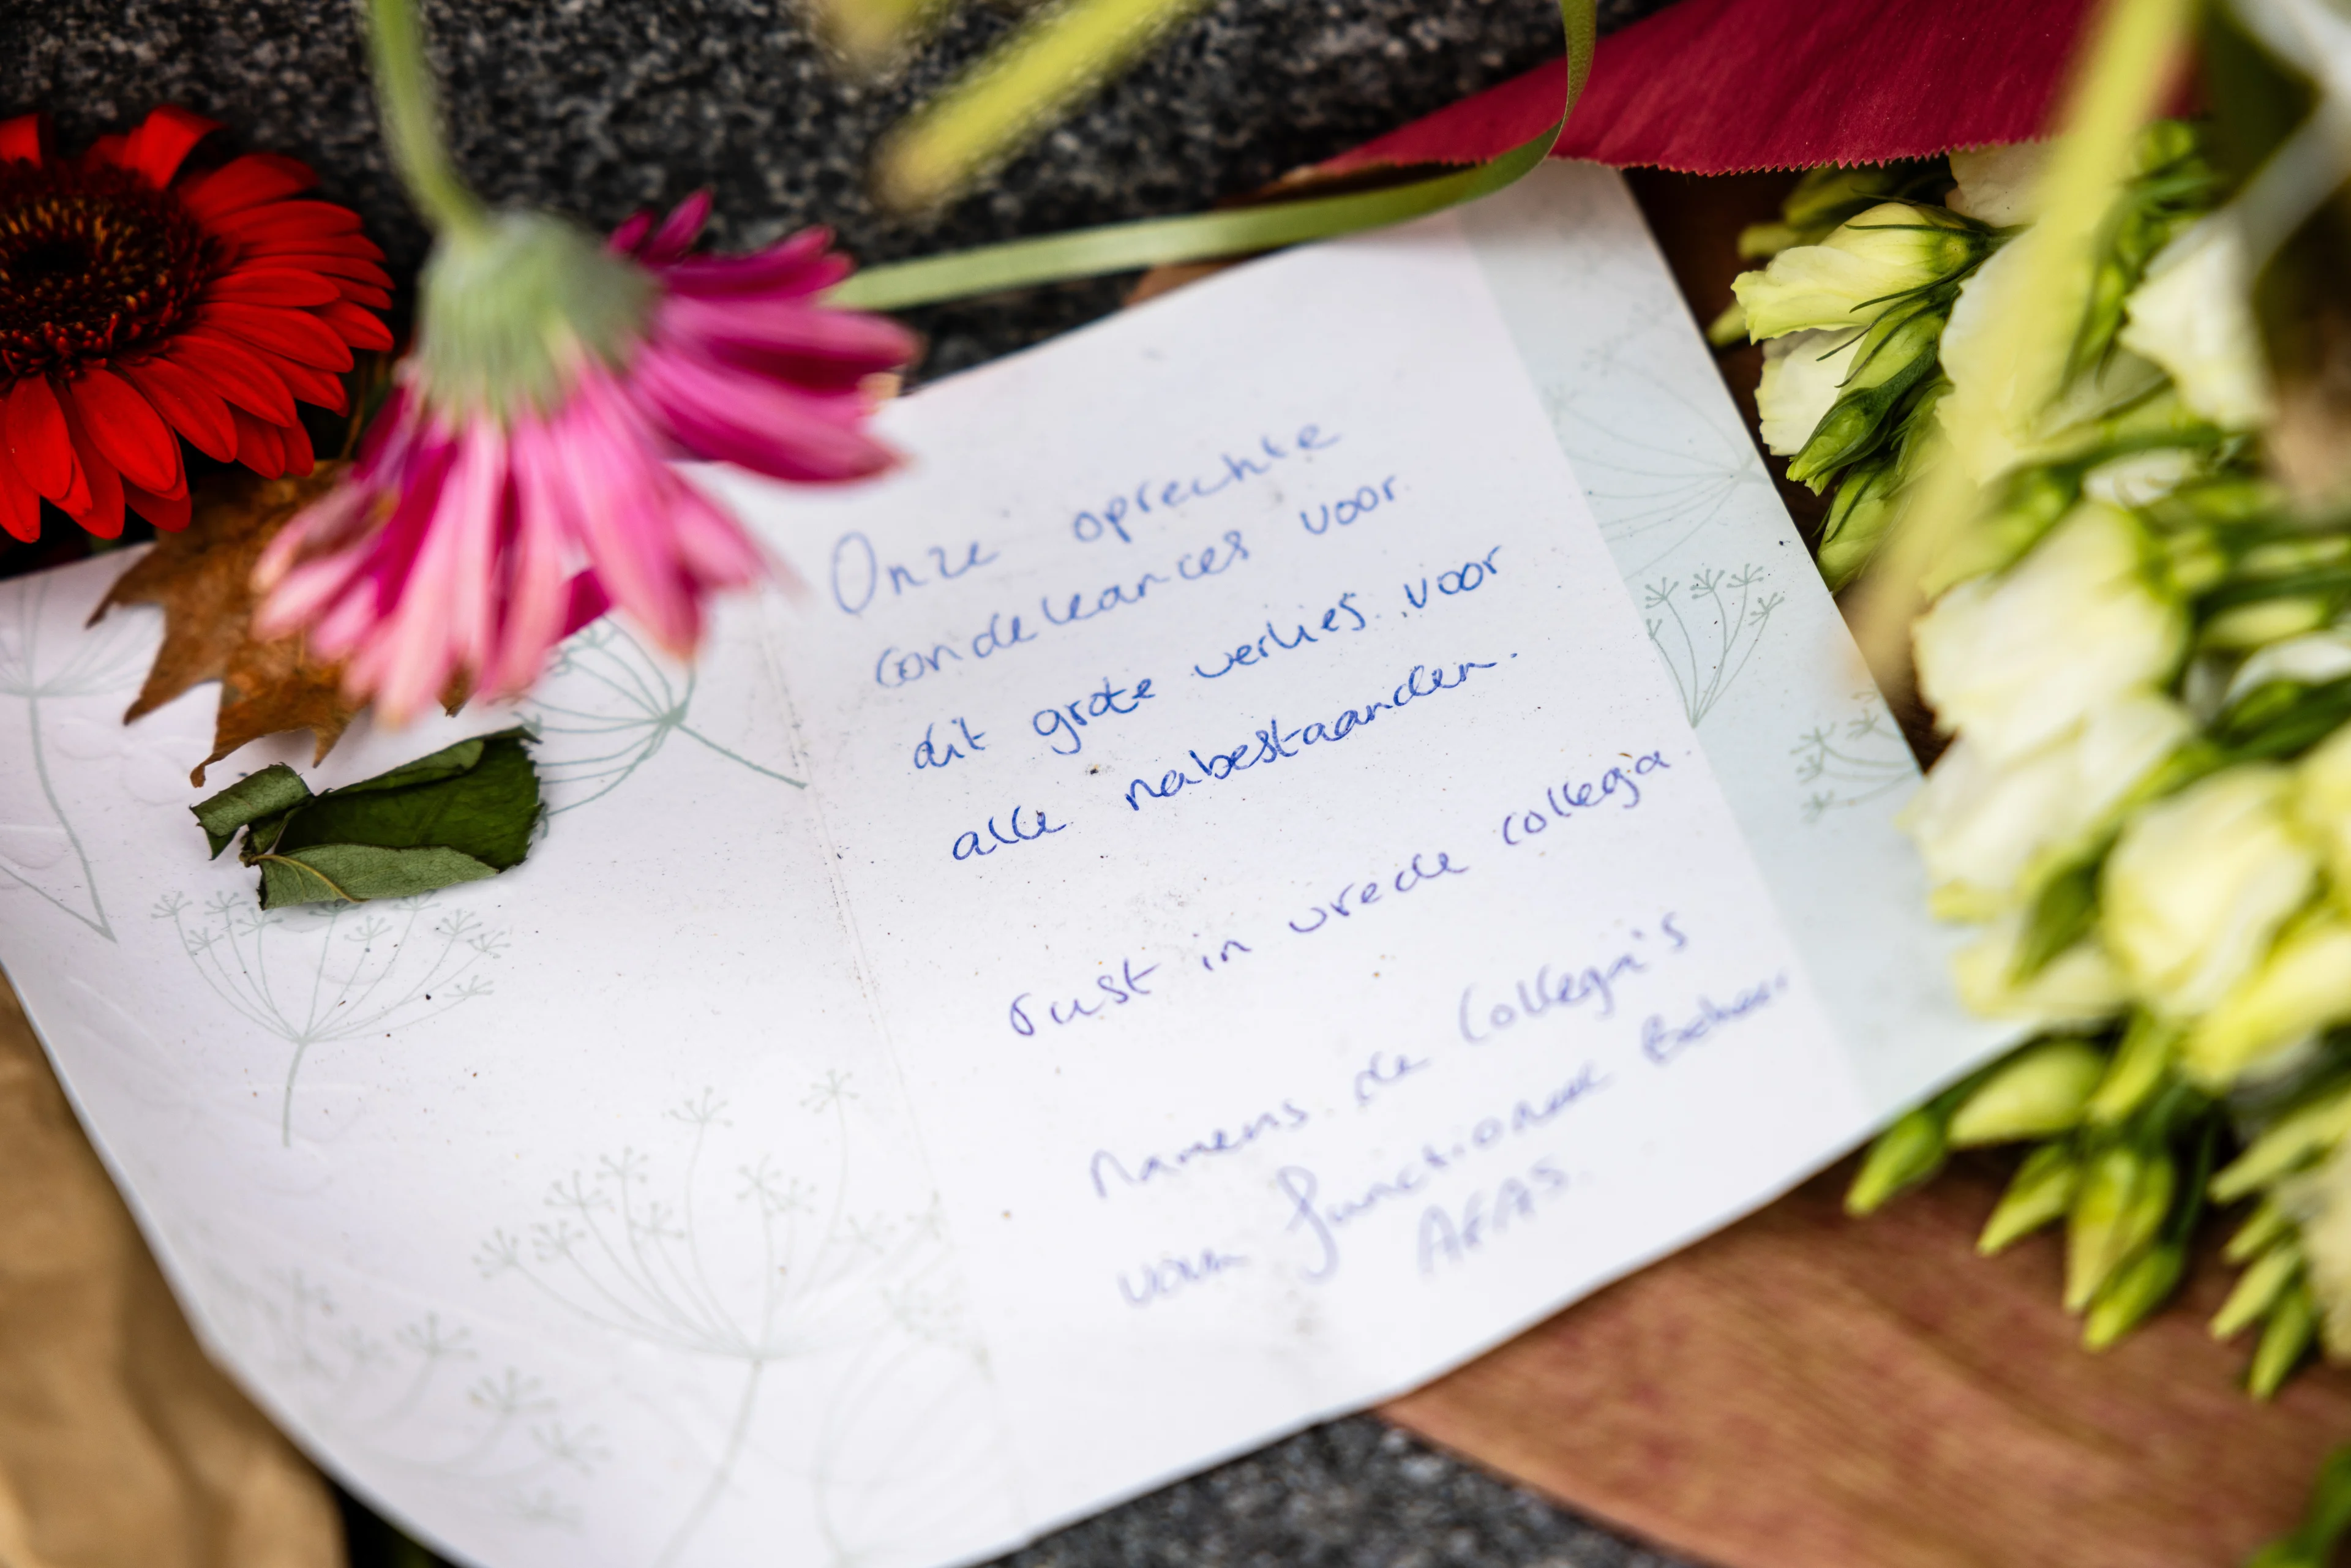 Onze oprechte
condeleances voor
dit grote verlies voor
alle nabestaanden.
rust in vrede collega
Namens de Collega's
van functioneel Beheer
AFAS.